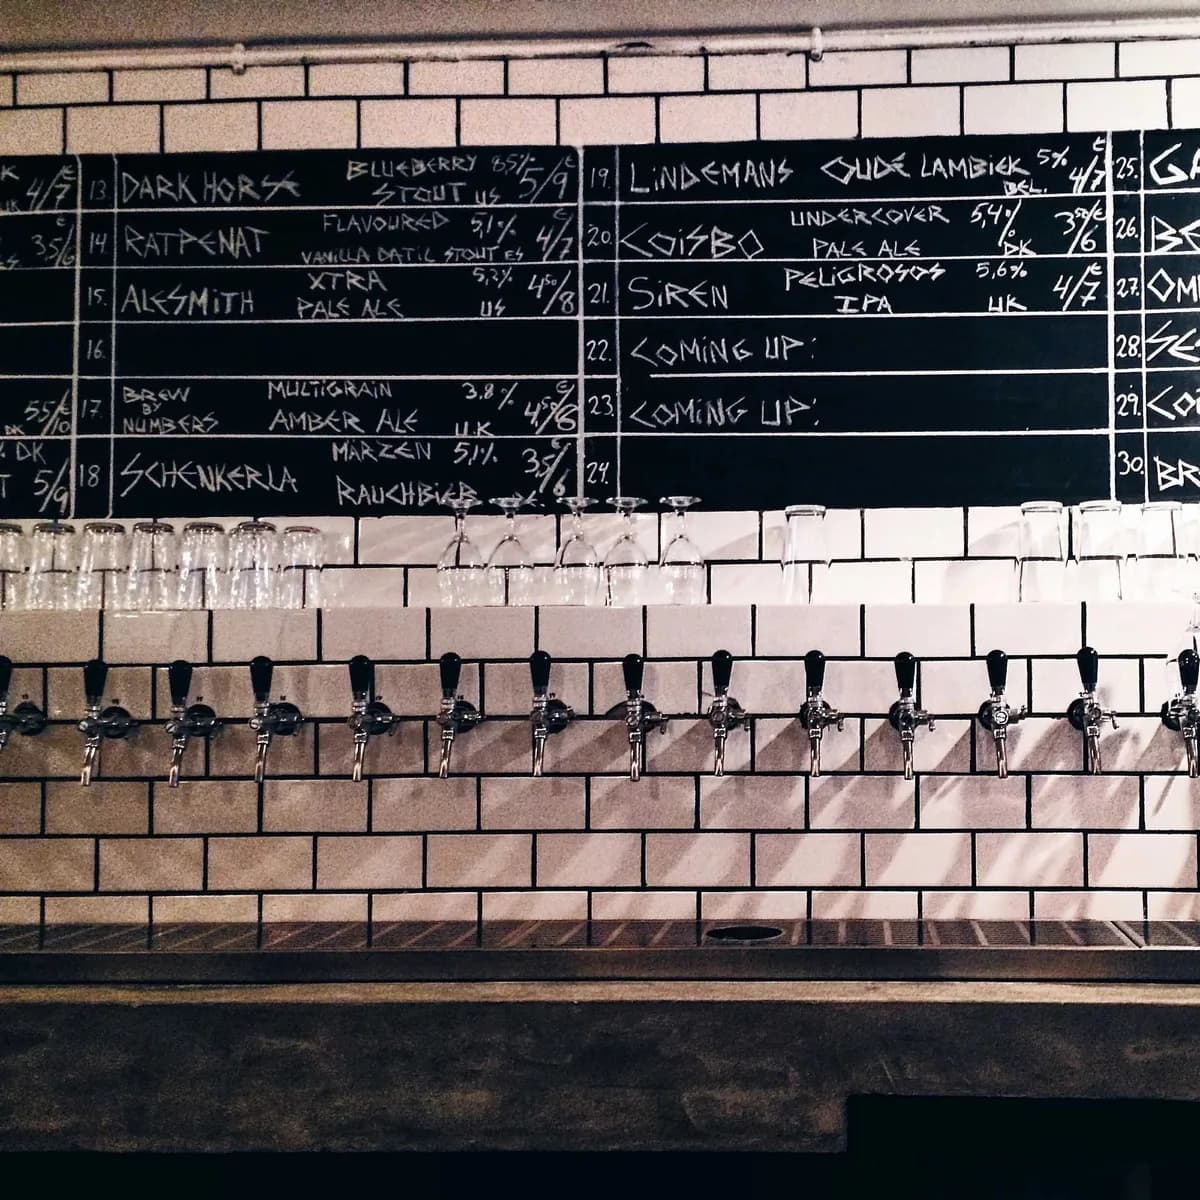 K 4/7 €
3,5/6 €
55/10 €
DK
DK
5/9
13. DARK HORSE BLUEBERRY 8,5% 5/9 €
STOUT US
14. RATPENAT FLAVOURED 5,1% 4/7 €
VANILLA DATIL STOUT ES
15. ALESMITH XTRA 5,2% 4,50/8 €
PALE ALE US
16.
17. BREW MULTIGRAIN 3,8% 4,50/6 €
BY
NUMBERS AMBER ALE U.K
18 SCHENKERLA MÄRZEN 5,1% 3,5/6 €
RAUCHBIER
19. LINDEMANS OUDE LAMBIEK 5% 4/7 €
BEL.
20. COISBO UNDERCOVER 5,4% 3,50/6 €
PALE ALE DK
21. SIREN PELIGROSOS 5,6% 4/7 €
IPA UK
22. COMING UP:
23. COMING UP:
24.
25. GA
26. BE
27. OM
28. SE
29. COI
30. BR